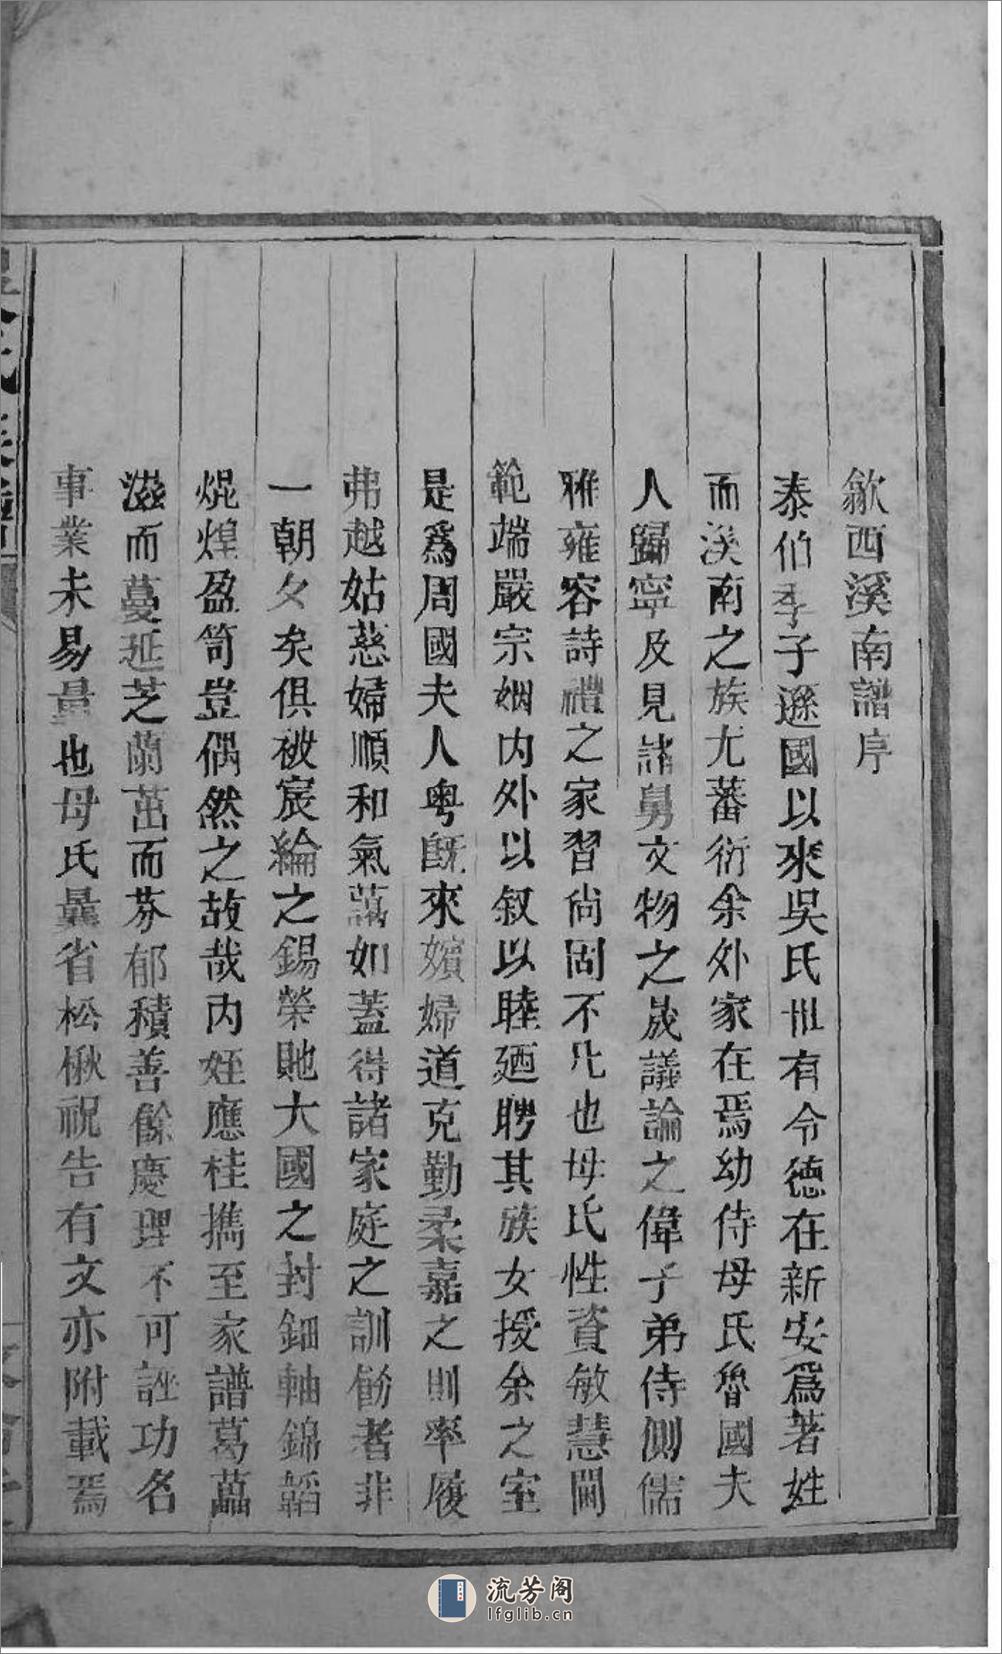 歙西溪南譜序
泰伯季子遜國以來吳氏世有令德在新安爲著姓
而溪南之族尤蕃衍余外家在焉幼侍母氏魯國夫
人歸寧及見諸舅文物之晟議論之偉子弟侍側儒
雅雍容詩禮之家習尚固不凡也母氏性資敏慧閫
範端嚴宗姻内外以叙以睦廼聘其族女授余之室
是爲周國夫人粤旣來嬪婦道克勤柔嘉之則率履
弗越姑慈婦順和氣藹如蓋得諸家庭之訓飭者非
一朝夕矣俱被宸綸之錫榮貤大國之封鈿軸錦韜
焜煌盈笥豈偶然之故哉内姪應桂擕至家譜葛藟
滋而蔓延芝蘭茁而芬郁積善餘慶理不可誣功名
事業未易量也母氏曩省松楸祝告有文亦附載焉
流芳阁
lfglib.cn